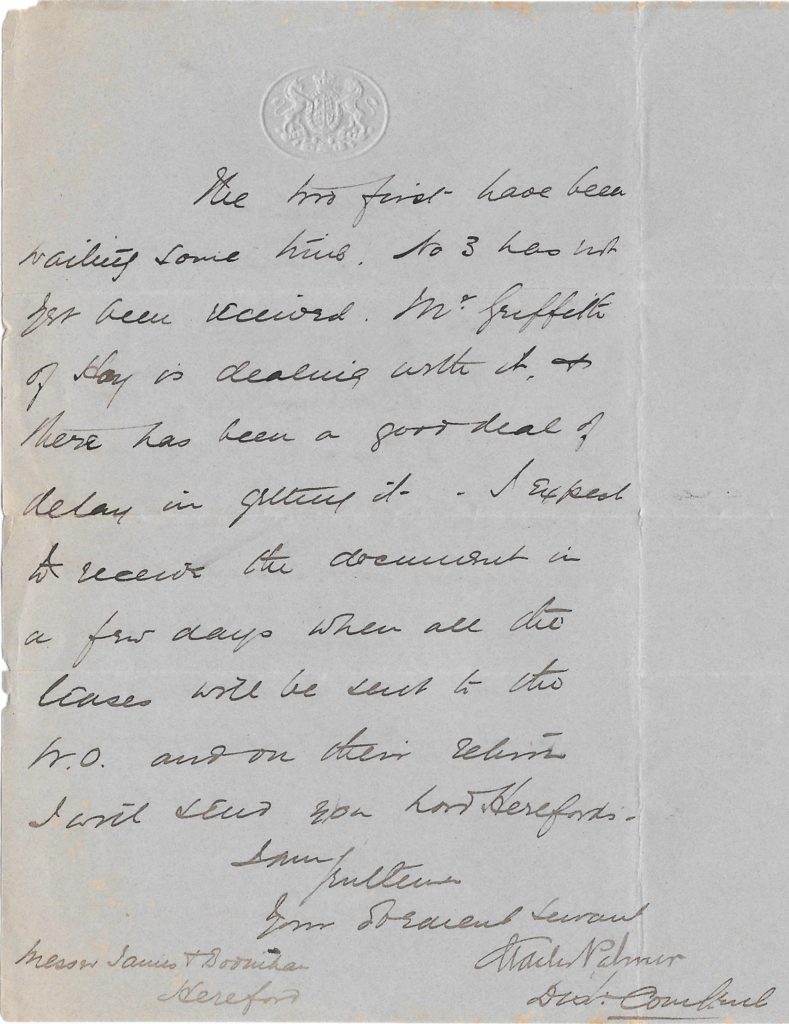 The two first have been
waiting some time. No 3 has not
yet been received. Mr. Griffith
of Hay is dealing with it, &
there has been a good deal of
delay in getting it - I expect
to receive the document in
a few days when all the
leases will be sent to the
W.O. and on their return
I will send you Lord Herefords.
I am Gentlemen
Your Obedient Servant
Messrs James & Bodenham
Hereford
Charles Palmer